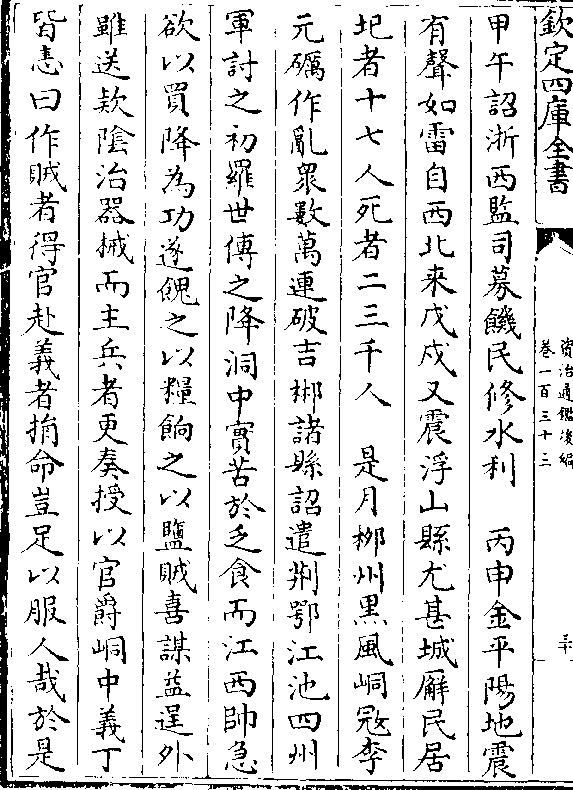 欽定四庫全書
資治通鑑後編
卷一百三十三
三十
甲午詔浙西監司募饑民修水利　丙申金平陽地震
有聲如雷自西北来戊戍又震浮山縣尤甚城廨民居
圯者十七人死者二三千人　是月郴州黒風峒㓂李
元礪作亂眾數萬連破吉郴諸縣詔遣荆鄂江池四州
軍討之初羅世傳之降洞中實苦於乏食而江西帥急
欲以買降為功遂餽之以糧餉之以鹽賊喜謀益逞外
雖送欵隂治器械而主兵者更奏授以官爵峒中義丁
皆恚曰作賊者得官赴義者捐命豈足以服人哉於是